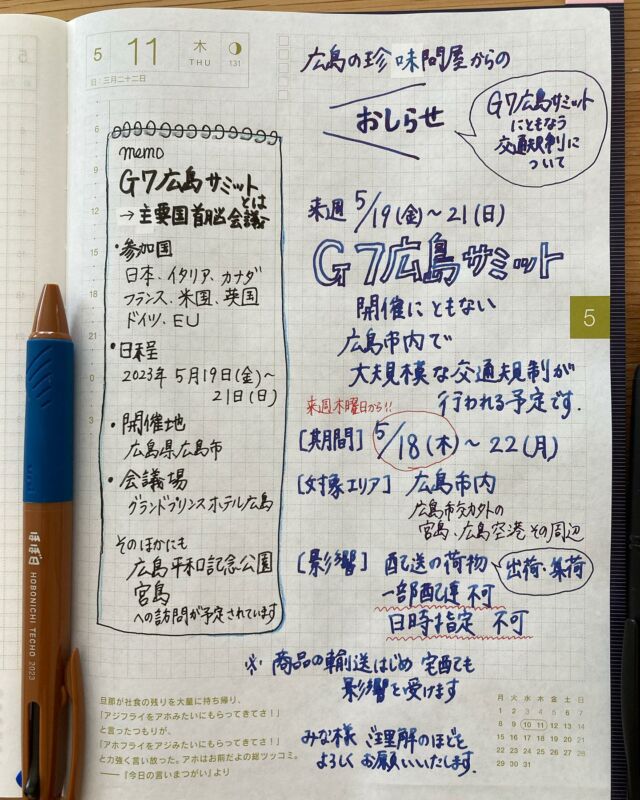 5 11 木 THU 131
旧：三月二十二日
memo
G7広島サミットとは
→主要国首脳会議
・参加国
日本、イタリア、カナダ
フランス、米国、英国
ドイツ、EU
・日程
2023年 5月19日(金)〜
21日(日)
・開催地
広島県広島市
・会議場
グランドプリンスホテル広島
そのほかにも
広島平和記念公園
宮島
への訪問が予定されています
6
9
12
15
18
21
0
3
広島の珍味問屋からの
おしらせ
G7広島サミット
にともなう
交通規制に
ついて
来週 5/19(金)〜21(日)
G7広島サミット
開催にともない
広島市内で
大規模な交通規制が
行われる予定です.
来週木曜日から!!
[期間] 5/18(木)〜22(月)
[対象エリア] 広島市内
広島市外の
宮島、広島空港 その周辺
[影響] 配送の荷物
出荷・集荷
一部配達 不可
日時指定 不可
※ 商品の輸送はじめ 宅配も
影響を受けます
みな様 ご理解のほどを
よろしくお願いいたします.
5
旦那が社食の残りを大量に持ち帰り、
「アジフライをアホみたいにもらってきてさ！」
と言ったつもりが、
「アホフライをアジみたいにもらってきてさ！」
と力強く言い放った。アホはお前だよの総ツッコミ。
——『今日の言いまつがい』より
月 火 水 木 金 土 日
1 2 3 4 5 6 7
8 9 10 11 12 13 14
15 16 17 18 19 20 21
22 23 24 25 26 27 28
29 30 31
ほぼ日 HOBONICHI TECHO 2023